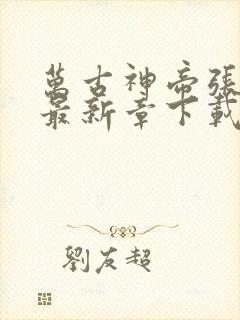 萬古神帝張
最新章下載
劉友超